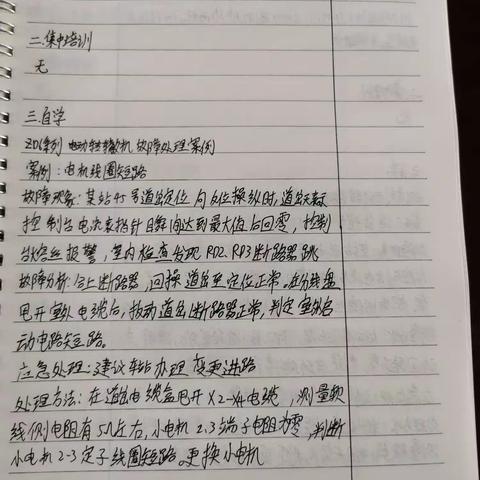 二.集中培训
无
三.自学
ZD(系列)电动转辙机故障处理案例
案例:电机线圈短路
故障现象:某站45号道岔定位向反位操纵时,道岔无表示
控制台电流表指针瞬间达到最大值后回零,控制
台熔丝报警,室内检查发现RD2.RD3断路器跳
故障分析:合上断路器,回操道岔至定位正常.在分线盘
甩开室外电缆后,扳动道岔断路器正常,判定室外启
动电路短路。
应急处理:建议车站办理变更进路
处理方法:在道岔电缆盒甩开X2-X4电缆,测量软
线侧电阻有5Ω左右,小电机2.3端子电阻为零,判断
小电机2-3定子线圈短路.更换小电机